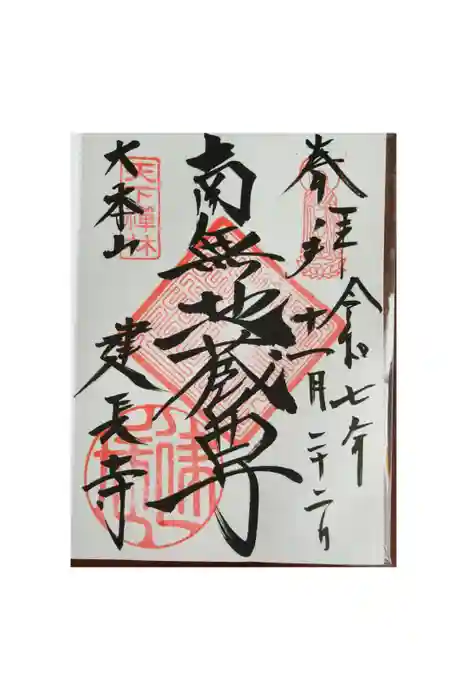 奉拝
令和七年
十一月二十二日
南無地蔵尊
天下禅林
大本山
建長寺